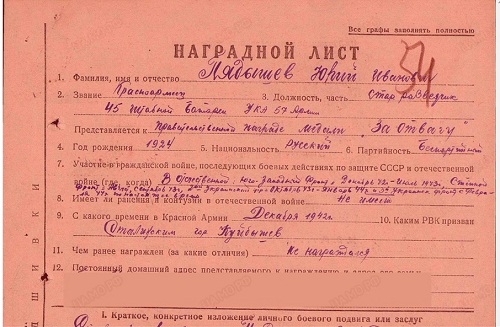 Все графы заполнять полностью
НАГРАДНОЙ ЛИСТ
1. Фамилия, имя и отчество Лядышев Юрий Иванович
2. Звание Красноармеец 3. Должность, часть Стар разведчик
45 штабной батареи УКА 57 Армии
Представляется к Правительственной награде медаль "За отвагу"
4. Год рождения 1924 5. Национальность Русский 6. Партийность Беспартийный
7. Участие в гражданской войне, последующих боевых действиях по защите СССР и отечественной
войне (где, когда) В Отечественной: Юго-Западный фронт с Декабря 42- Июль 1943г. Степной
фронт 43г. 2ой Украинский фр-т 43г- Январь 44г и 3й Украинский фронт с
44г
8. Имеет ли ранения и контузии в отечественной войне не имеет
9. С какого времени в Красной Армии Декабря 1942г. 10. Каким РВК призван
гор Куйбышев
11. Чем ранее награжден (за какие отличия) Не награждался
12. Постоянный домашний адрес представляемого к награждению и адрес его семьи
I. Краткое, конкретное изложение личного боевого подвига или заслуг